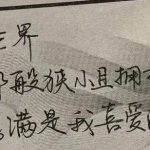 世界
般狭小且拥
满是我喜爱